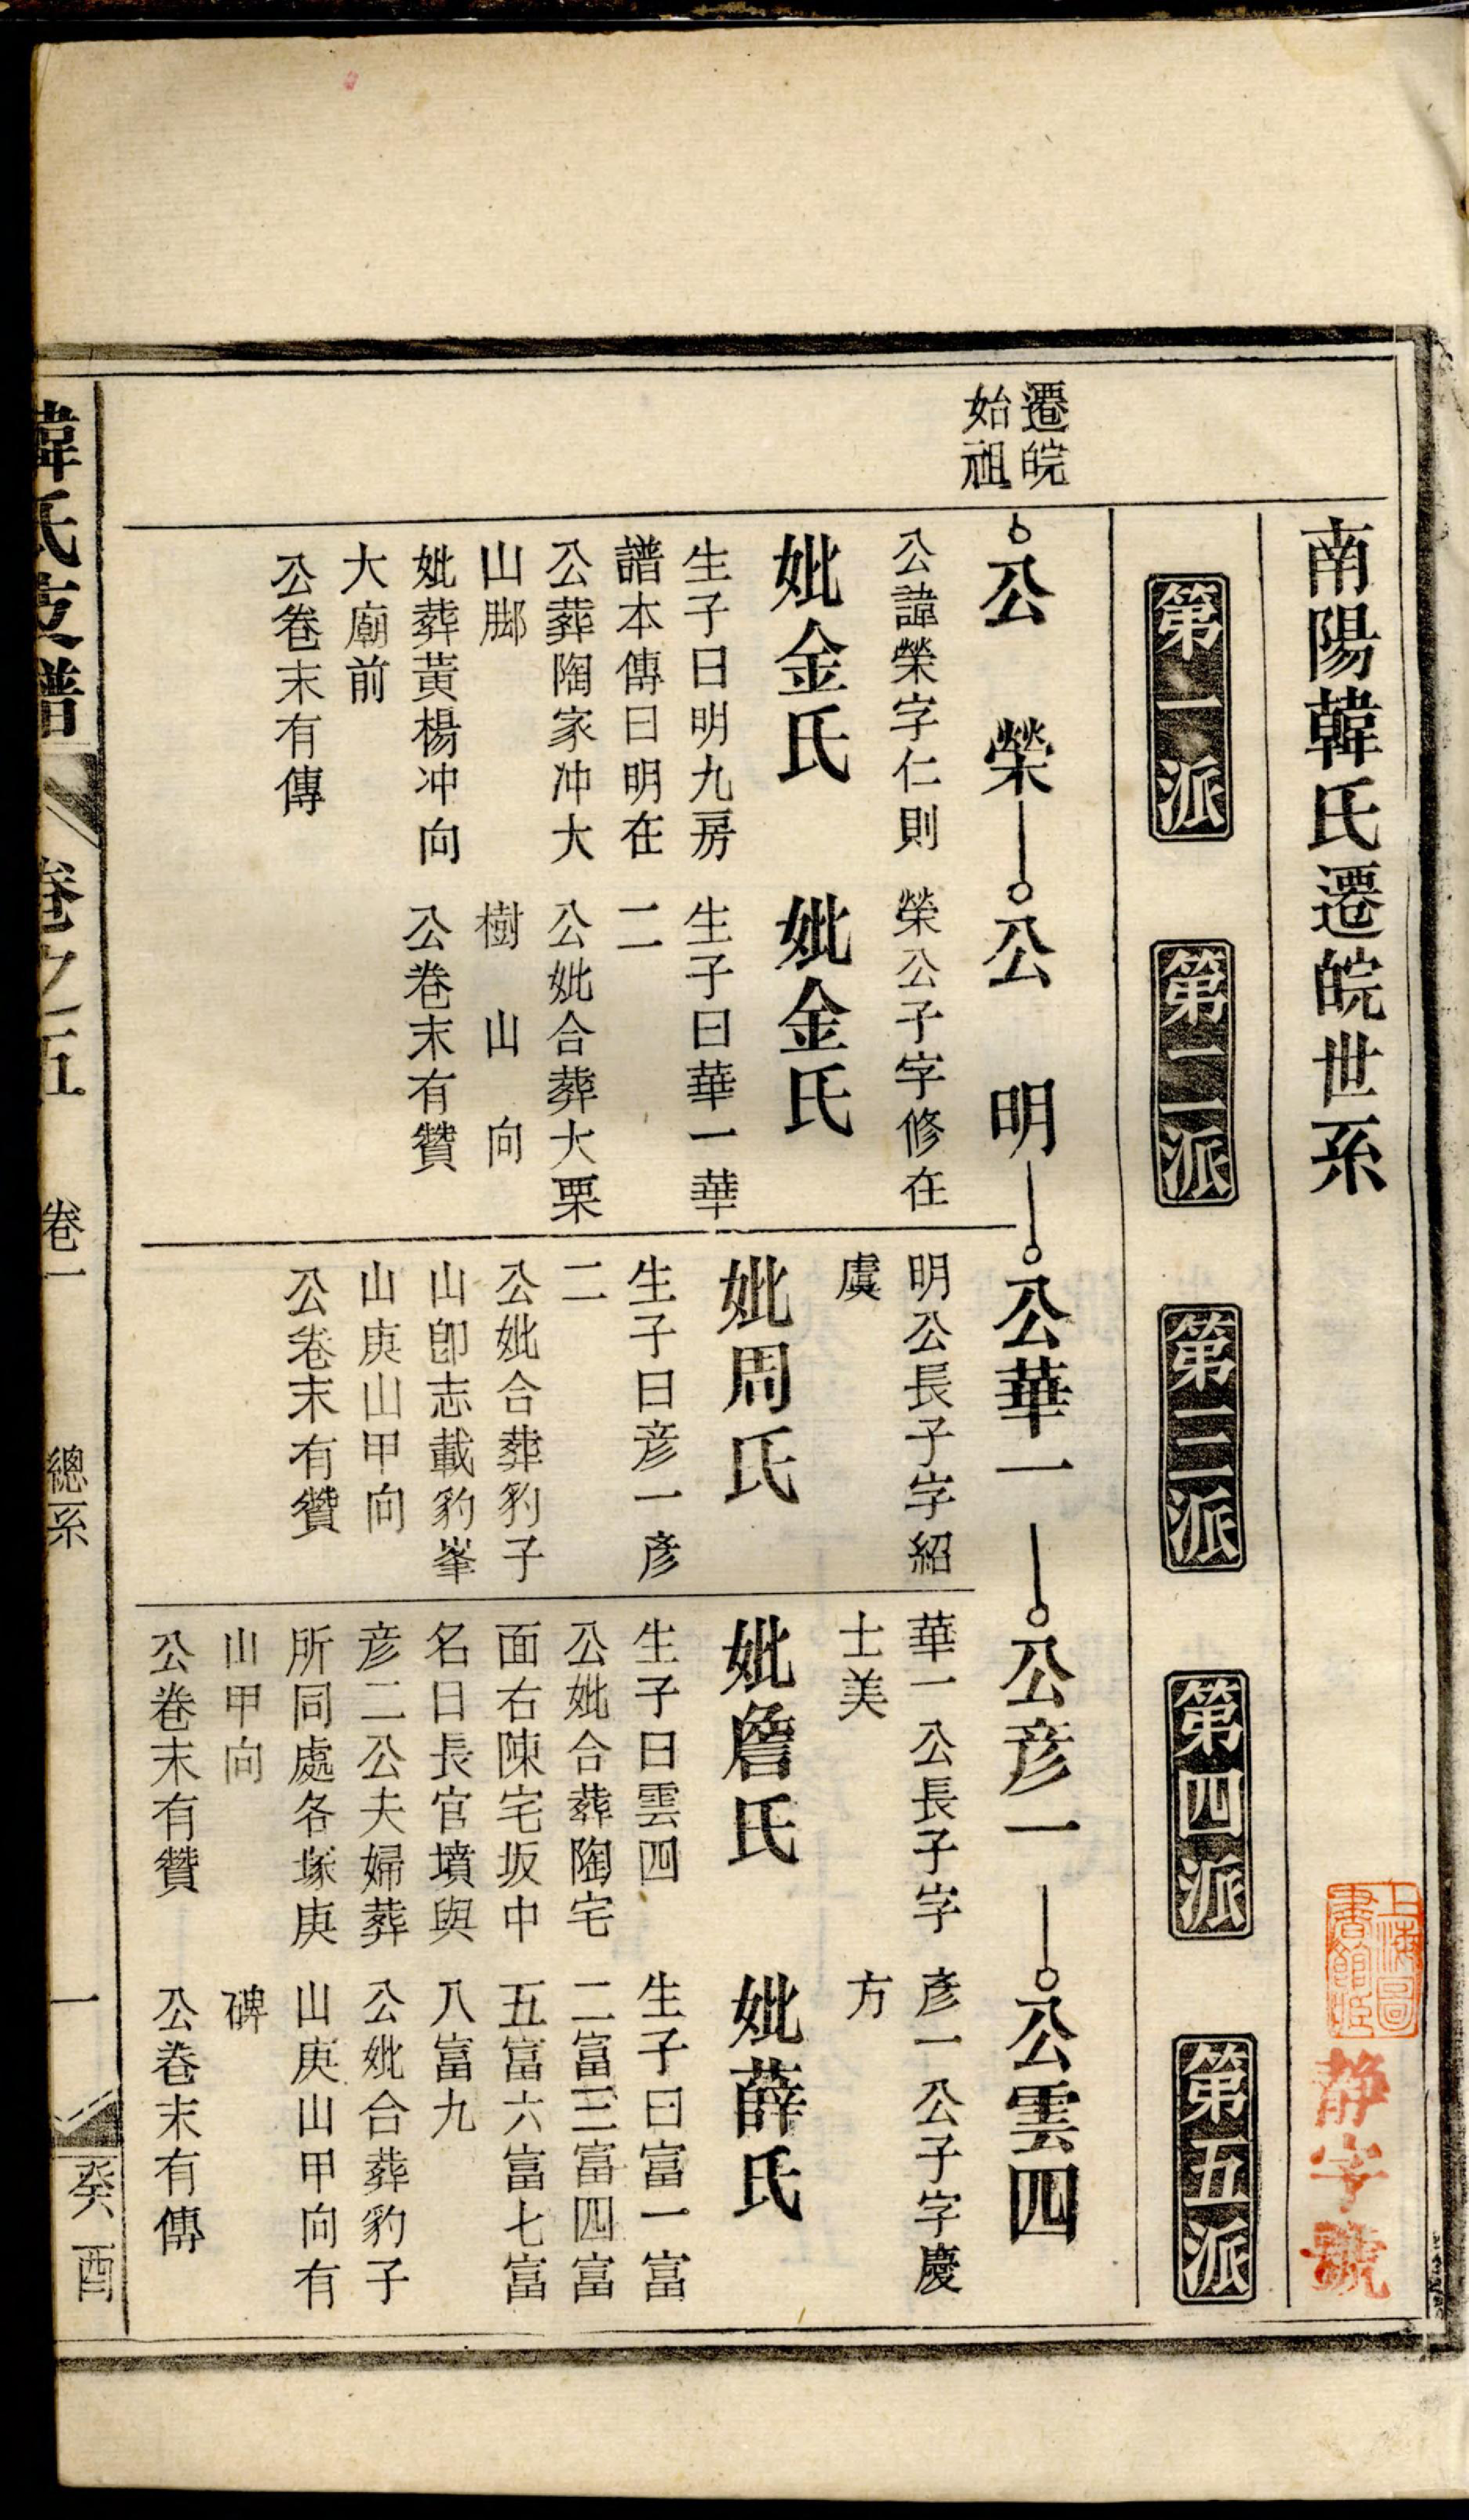 南陽韓氏遷皖世系
上海圖
書館
静字號
第一派
第二派
第三派
第四派
第五派
遷皖
始祖
公榮
公諱榮字仁則
妣金氏
生子曰明九房
譜本傳曰明在
公葬陶家冲大
山脚
妣葬黃楊冲向
大廟前
公卷末有傳
公明
榮公子字修在
妣金氏
生子曰華一華
二
公妣合葬大栗
樹山向
公卷末有贊
公華一
明公長子字紹
虞
妣周氏
生子曰彦一彦
二
公妣合葬豹子
山卽志載豹峯
山庚山甲向
公卷末有贊
公彦一
華一公長子字
士美
妣詹氏
生子曰雲四
公妣合葬陶宅
面右陳宅坂中
名曰長官墳與
彦二公夫婦葬
所同處各塚庚
山甲向
公卷末有贊
公雲四
彦一公子字慶
方
妣薛氏
生子曰富一富
二富三富四富
五富六富七富
八富九
公妣合葬豹子
山庚山甲向有
碑
公卷末有傳
韓氏支譜
卷之五 卷一 總系 一 癸酉